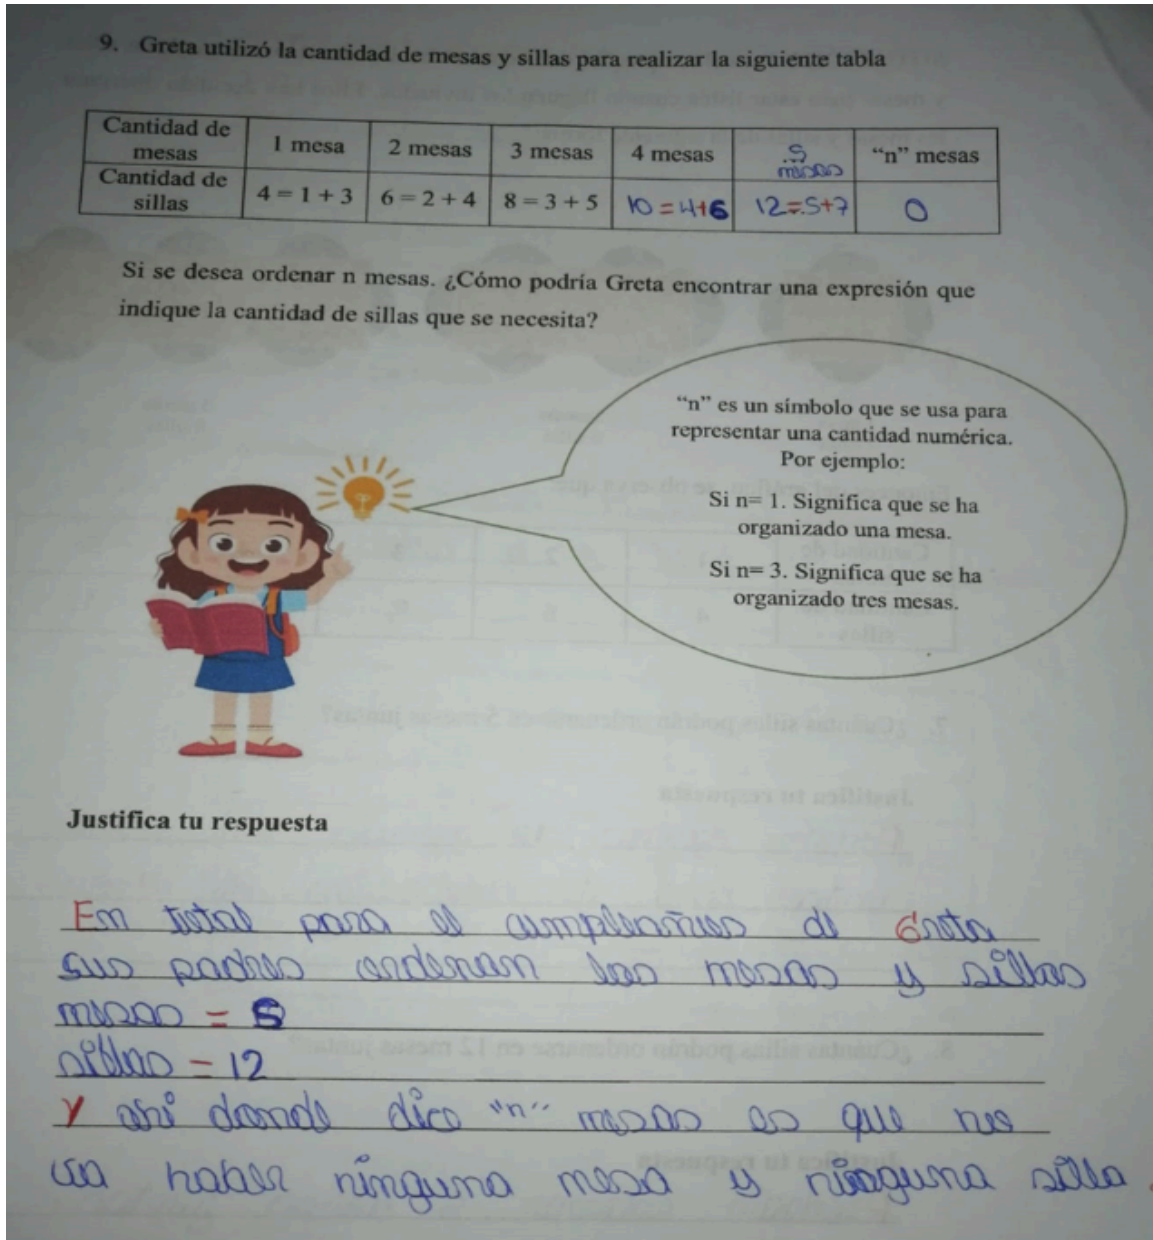 9. Greta utilizó la cantidad de mesas y sillas para realizar la siguiente tabla
Cantidad de mesas 1 mesa 2 mesas 3 mesas 4 mesas 5 mesas “n” mesas
Cantidad de sillas 4 = 1 + 3 6 = 2 + 4 8 = 3 + 5 10 = 4+6 12 = 5+7 0
Si se desea ordenar n mesas. ¿Cómo podría Greta encontrar una expresión que
indique la cantidad de sillas que se necesita?
“n” es un símbolo que se usa para
representar una cantidad numérica.
Por ejemplo:
Si n= 1. Significa que se ha
organizado una mesa.
Si n= 3. Significa que se ha
organizado tres mesas.
Justifica tu respuesta
En total para el cumpleaños de Greta
sus padres ordenan las mesas y sillas
mesas = 5
sillas = 12
y ahí donde dice "n" mesas es que no
va haber ninguna mesa y ninguna silla.